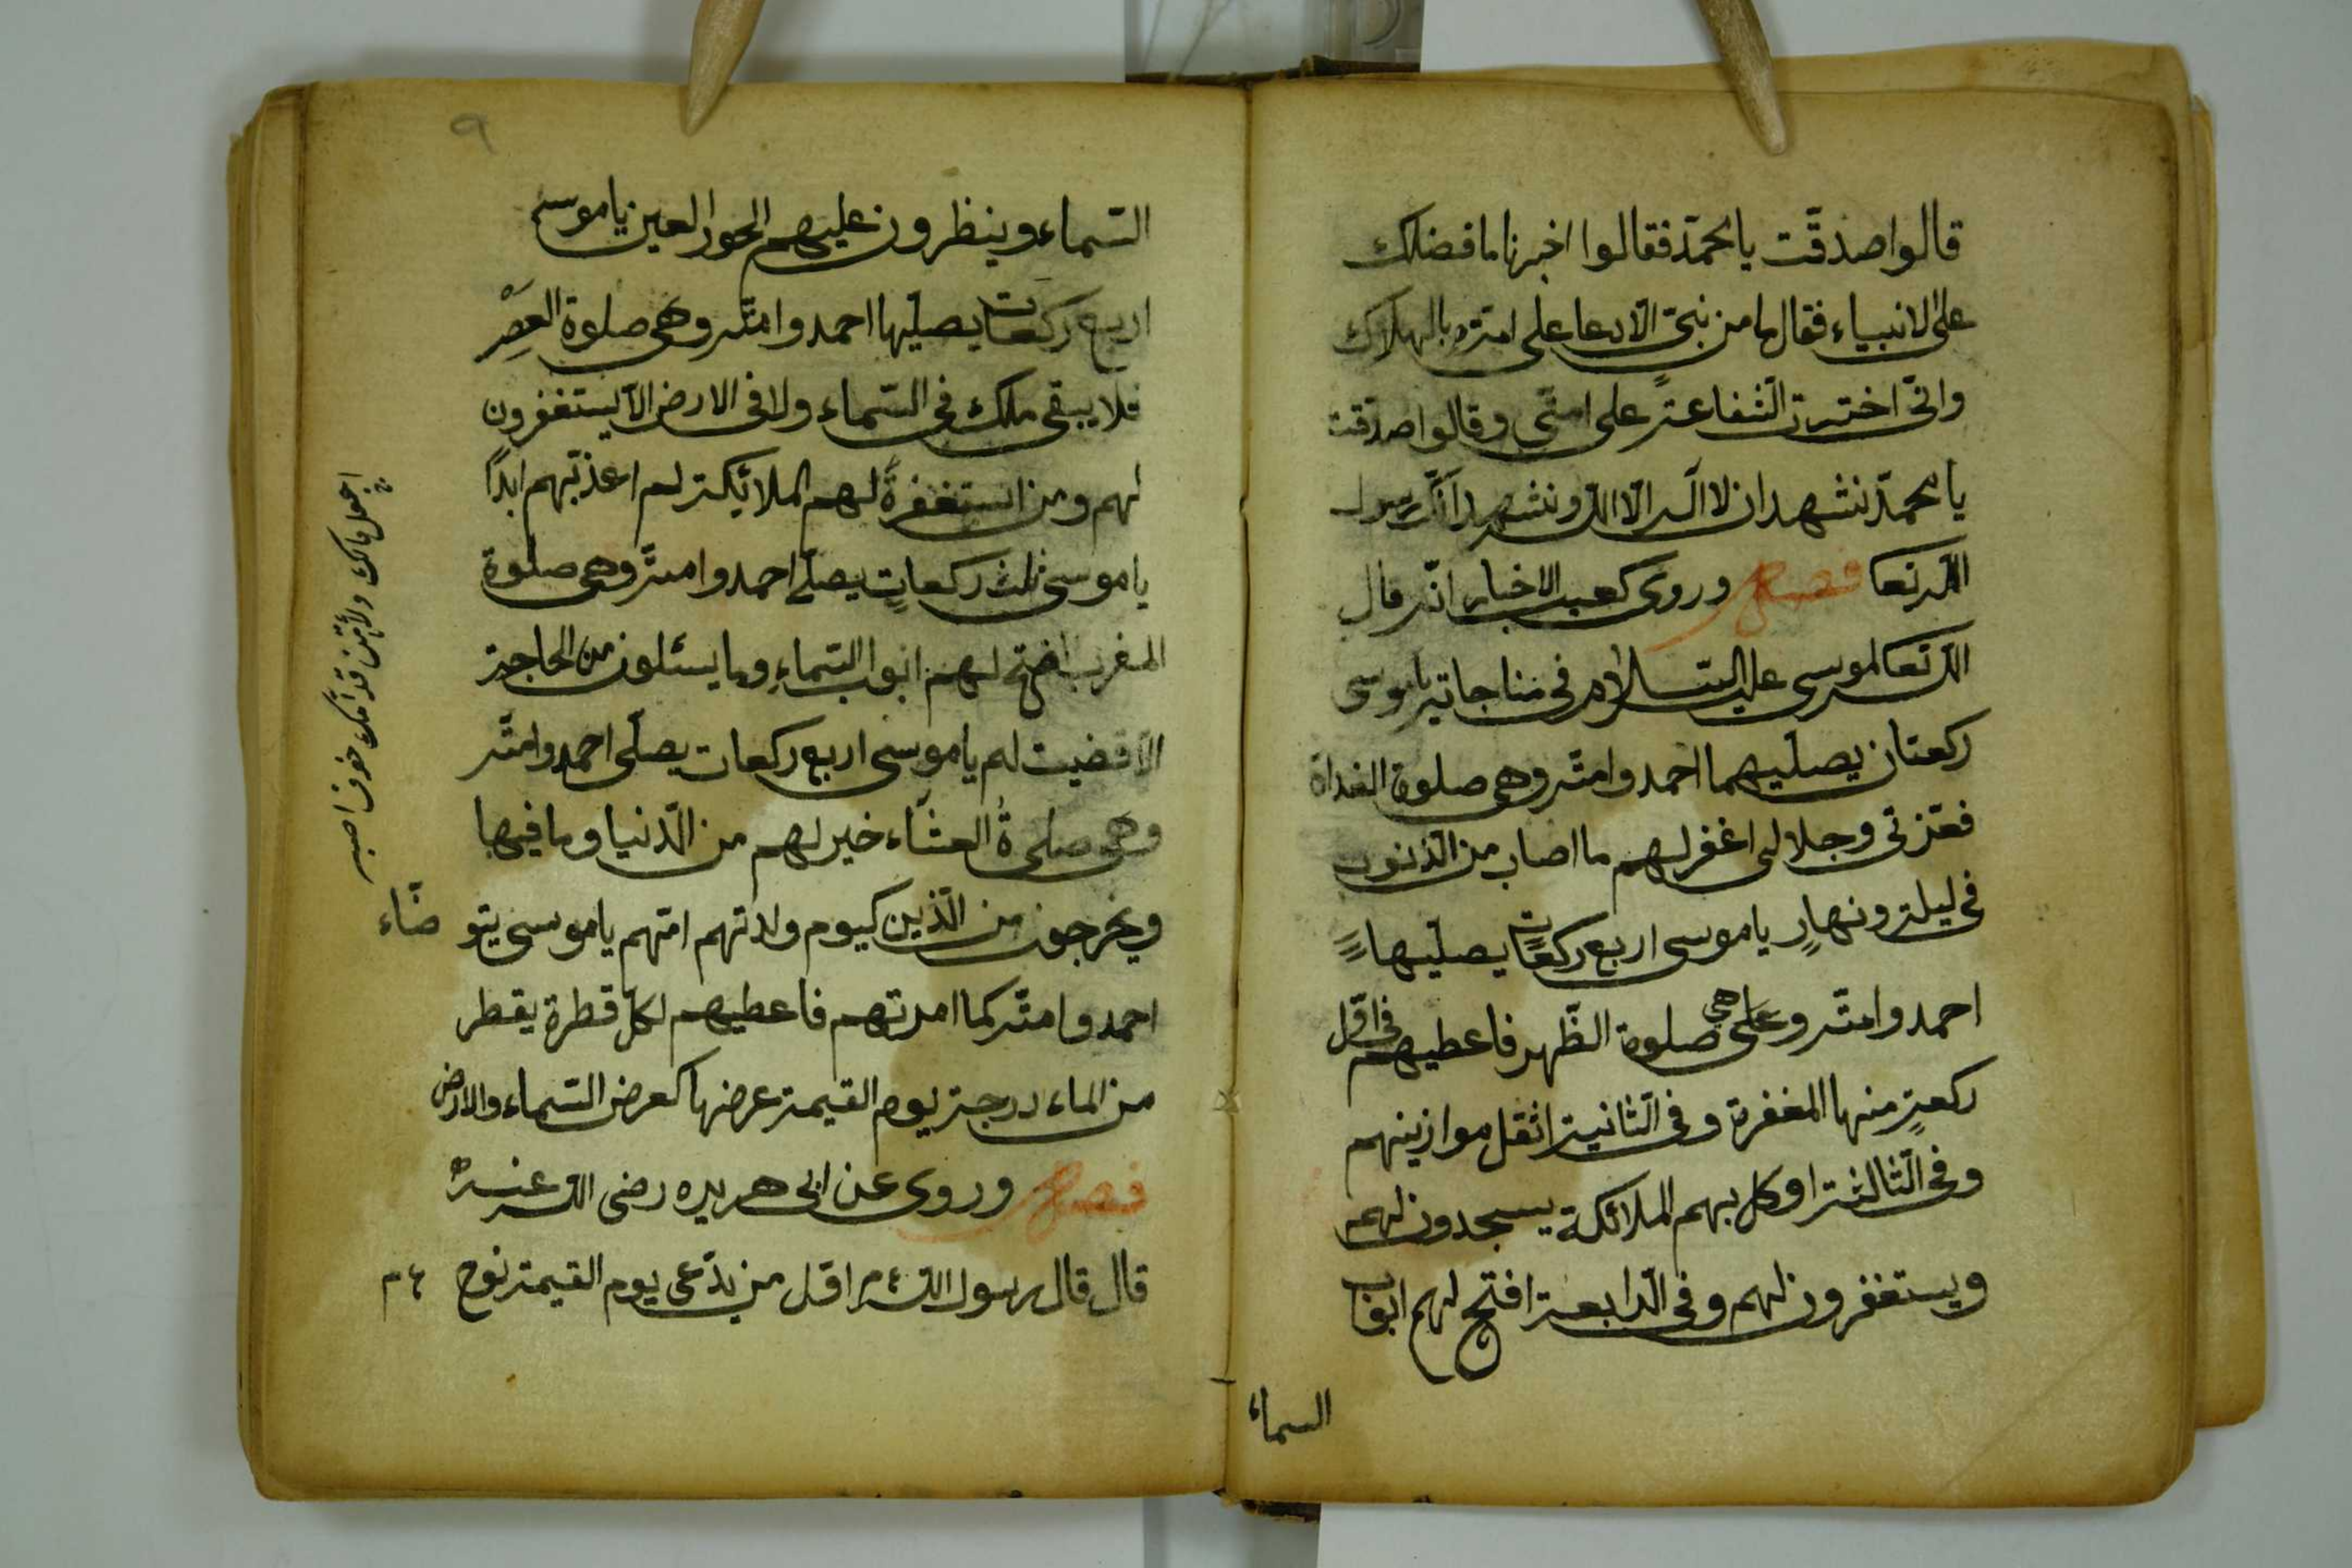 قالوا صدقت يا محمد فقالوا اخبرنا ما فضلك
على الانبياء فقال ما من نبى الا دعا على امته بالهلاك
وانى اخترت الشفاعة على امتى وقالوا صدقت
يا محمد نشهد ان لا اله الا الله ونشهد انك رسول
الله تعا فصل وروى كعب الاخبار انه قال
الله تعا لموسى عليه السلام فى مناجاته يا موسى
ركعتان يصليهما احمد وامته وهى صلوة الغداة
فعزتى وجلالى اغفر لهم ما اصاب من الذنوب
فى ليلة ونهار يا موسى اربع ركعات يصليها
احمد وامته وعلى هى صلوة الظهر فاعطيهم فى اول
ركعة منها المغفرة وفى الثانية اثقل موازينهم
وفى الثالثة اوكل بهم الملائكة يسجدون لهم
ويستغفرون لهم وفى الرابعة افتح لهم ابواب
السماء
٩
السماء وينظرون عليهم الحور العين يا موسى
اربع ركعات يصليها احمد وامته وهى صلوة العصر
فلا يبقى ملك فى السماء ولا فى الارض الا يستغفرون
لهم ومن استغفرة لهم الملائكة لم اعذبهم ابدا
يا موسى ثلث ركعات يصلى احمد وامته وهى صلوة
المغرب افتح لهم ابواب السماء وما يسئلون من الحاجة
الا قضيت لهم يا موسى اربع ركعات يصلى احمد وامته
وهى صلوة العشاء خير لهم من الدنيا وما فيها
ويخرجون من الذين كيوم ولدتهم امهم يا موسى يتو ضاء
احمد وامته كما امرتهم فاعطيهم لكل قطرة يقطر
من الماء درجة يوم القيمة عرضها كعرض السماء والارض
فصل وروى عن ابى هريره رضى الله عنه
قال قال رسول الله ءم اول من يدعى يوم القيمة نوح ءم